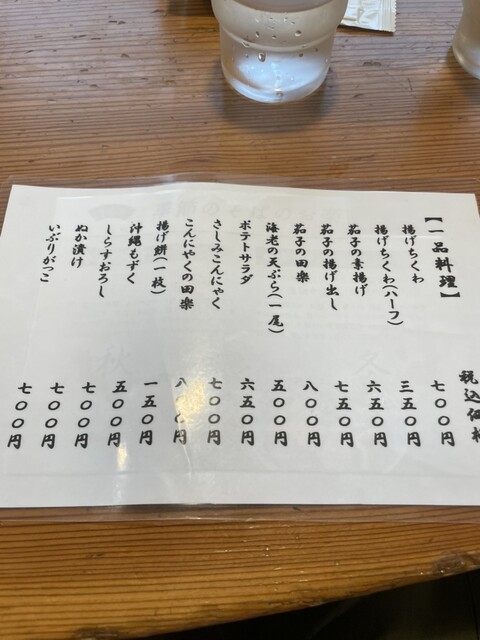 【一品料理】 税込価格
揚げちくわ 七〇〇円
揚げちくわ(ハーフ) 三五〇円
茄子の素揚げ 六五〇円
茄子の揚げ出し 七五〇円
茄子の田楽 八〇〇円
海老の天ぷら(一尾) 五〇〇円
ポテトサラダ 六五〇円
さしみこんにゃく 七〇〇円
こんにゃくの田楽 八〇〇円
揚げ餅(一枚) 一五〇円
沖縄もずく 五〇〇円
しらすおろし 七〇〇円
ぬか漬け 七〇〇円
いぶりがっこ 七〇〇円